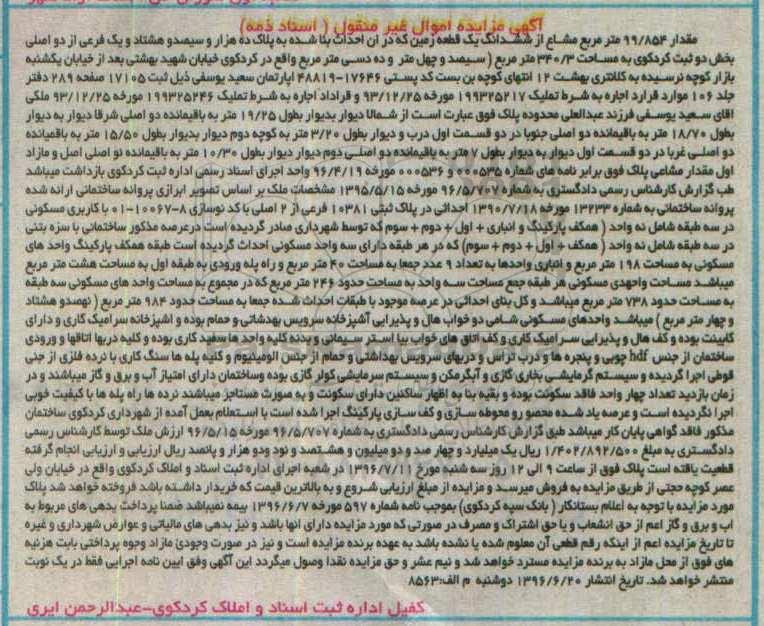 آگهی مزایده اموال غیر منقول ( اسناد ذمه)
مقدار ۹۹/۸۵۴ متر مربع مشاع از ششدانگ یک قطعه زمین که در ان احداث بنا شده به پلاک ده هزار و سیصدو هشتاد و یک فرعی از دو اصلی
بخش دو ثبت کردکوی به مساحت ۳۴۰/۳ متر مربع ( سیصد و چهل متر و ده دسی متر مربع واقع در کردکوی خیابان شهید بهشتی بعد از خیابان یکشنبه
بازار کوچه نرسیده به کلانتری بهشت ۱۲ انتهای کوچه بن بست کد پستی ۱۷۶۴۶-۴۸۸۱۹ اپارتمان سعید یوسفی ذیل ثبت ۱۷۱۰۵ صفحه ۲۸۹ دفتر
جلد ۱۰۶ موارد قرارد اجاره به شرط تملیک ۱۹۹۳۲۵۲۱۷ مورخه ۹۳/۱۲/۲۵ و قراداد اجاره به شرط تملیک ۱۹۹۳۲۵۲۴۶ مورخه ۹۳/۱۲/۲۵ ملکی
اقای سعید یوسفی فرزند عبدالعلی محدوده پلاک فوق عبارت است از شمالا دیوار بدیوار بطول ۱۹/۲۵ متر به باقیمانده دو اصلی شرقا دیوار به دیوار
بطول ۱۸/۷۰ متر به باقیمانده دو اصلی جنوبا در دو قسمت اول درب و دیوار بطول ۳/۲۰ متر به کوچه دوم دیوار بدیوار بطول ۱۵/۵۰ متر به باقیمانده
دو اصلی غربا در دو قسمت اول دیوار به دیوار بطول ۷ متر به باقیمانده دو اصلی دوم دیوار دیوار بطول ۱۰/۳۰ متر به باقیمانده نو اصلی اصل و مازاد
اول مقدار مشاعی پلاک فوق برابر نامه های شماره ۰۰۰۵۳۵ و ۰۰۰۵۳۶ مورخه ۹۶/۴/۱۹ واحد اجرای اسناد رسمی اداره ثبت کردکوی بازداشت میباشد
طب گزارش کارشناس رسمی دادگستری به شماره ۹۶/۵/۷۰۷ مورخه ۱۳۹۵/۵/۱۵ مشخصات ملک بر اساس تصویر ابرازی پروانه ساختمانی ارائه شده
پروانه ساختمانی به شماره ۱۳۲۳۳ مورخه ۱۳۹۰/۷/۱۸ احداثی در پلاک ثبتی ۱۰۳۸۱ فرعی از ۲ اصلی با کد نوسازی ۸-۱۰۰۶۷-۰۱ با کاربری مسکونی
در سه طبقه شامل نه واحد ( همکف پارکینگ و انباری + اول + دوم + سوم که توسط شهرداری صادر گردیده است درعرصه مذکور ساختمانی با سزه بتنی
در سه طبقه شامل نه واحد ( همکف + اول + دوم + سوم) که در هر طبقه دارای سه واحد مسکونی احداث گردیده است طبقه همکف پارکینگ واحد های
مسکونی به مساحت ۱۹۸ متر مربع و انباری واحدها به تعداد ۹ عدد جمعا به مساحت ۴۰ متر مربع و راه پله ورودی به طبقه اول به مساحت هشت متر مربع
میباشد مساحت واحهدی مسکونی هر طبقه جمع مساحت سه واحد به مساحت حدود ۲۴۶ متر مربع که در مجموع به مساحت واحد های مسکونی سه طبقه
به مساحت حدود ۷۳۸ متر مربع میباشد و کل بنای احداثی در عرصه موجود با طبقات احداث شده جمعا به مساحت حدود ۹۸۴ متر مربع ( نهصدو هشتاد
و چهار متر مربع ) میباشد واحدهای مسکونی شامی دو خواب هال و پذیرایی آشپزخانه سرویس بهدشاتی و حمام بوده و اشپزخانه سرامیک کاری و دارای
کابینت بوده و کف هال و پذیرایی سرامیک کاری و کف اتاق های خواب بیا استر سیمانی و بدنه کلیه واحد ها سفید کاری بوده و کلیه دربها اتاقها و ورودی
ساختمان از جنس hdf چوبی و پنجره ها و درب تراس و دربهای سرویس بهداشتی و حمام از جنس الومینیوم و کلیه پله ها سنگ کاری با نرده فلزی از جنی
قوطی اجرا گردیده و سیستم گرمایشی بخاری گازی و آبگرمکن و سیستم سرمایشی کولر گازی بوده وساختمان دارای امتیاز آب و برق و گاز میباشند و در
زمان بازدید تعداد چهار واحد فاقد سکونت بوده و بقیه بنا به اظهار ساکنین دارای سکونت و به صورت مستاجر میباشند نرده ها راه پله ها با کیفیت خوبی
اجرا نگردیده است و عرصه یاد شده محصور و محوطه سازی و کف سازی پارکینگ اجرا شده است با استعلام بعمل آمده از شهرداری کردکوی ساختمان
مذکور فاقد گواهی پایان کار میباشد طبق گزارش کارشناس رسمی دادگستری به شماره ۹۶/۵/۷۰۷ مورخه ۹۶/۵/۱۵ ارزش ملک توسط کارشناس رسمی
دادگستری به مبلغ ۱/۴۰۲/۸۹۲/۵۰۰ ریال یک میلیارد و چهار صد و دو میلیون و هشتصد و نود ودو هزار و پانصد ریال ارزیابی و ارزیابی انجام گرفته
قطعیت یافته است پلاک فوق از ساعت ۹ الی ۱۲ روز سه شنبه مورخ ۱۳۹۶/۷/۱۱ در شعبه اجرای اداره ثبت اسناد و املاک کردکوی واقع در خیابان ولی
عصر کوچه حجتی از طریق مزایده به فروش میرسد و مزایده از مبلغ ارزیابی شروع و به بالاترین قیمت که خریدار داشته باشد فروخته خواهد شد پلاک
مورد مزایده با توجه به اعلام بستانکار ( بانک سپه کردکوی) بموجب نامه شماره ۵۹۷ مورخه ۱۳۹۶/۶/۷ بیمه نمیباشد ضمنا پرداخت بدهی های مربوط به
اب و برق و گاز اعم از حق انشعاب و یا حق اشتراک و مصرف در صورتی که مورد مزایده دارای انها باشد و نیز بدهی های مالیاتی و عوارض شهرداری و غیره
تا تاریخ مزایده اعم از اینکه رقم قطعی آن معلوم شده یا نشده باشد به عهده برنده مزایده است و نیز در صورت وجودی مازاد وجوه پرداختی بابت هزنیه
های فوق از محل مازاد به برنده مزایده مسترد خواهد شد و نیم عشر و حق مزایده نقدا وصول میگردد این آگهی وفق ایین نامه اجرایی فقط در یک نوبت
منتشر خواهد شد. تاریخ انتشار ۱۳۹۶/۶/۲۰ دوشنبه م الف:۸۵۶۳
کفیل اداره ثبت اسناد و املاک کردکوی-عبدالرحمن ایری